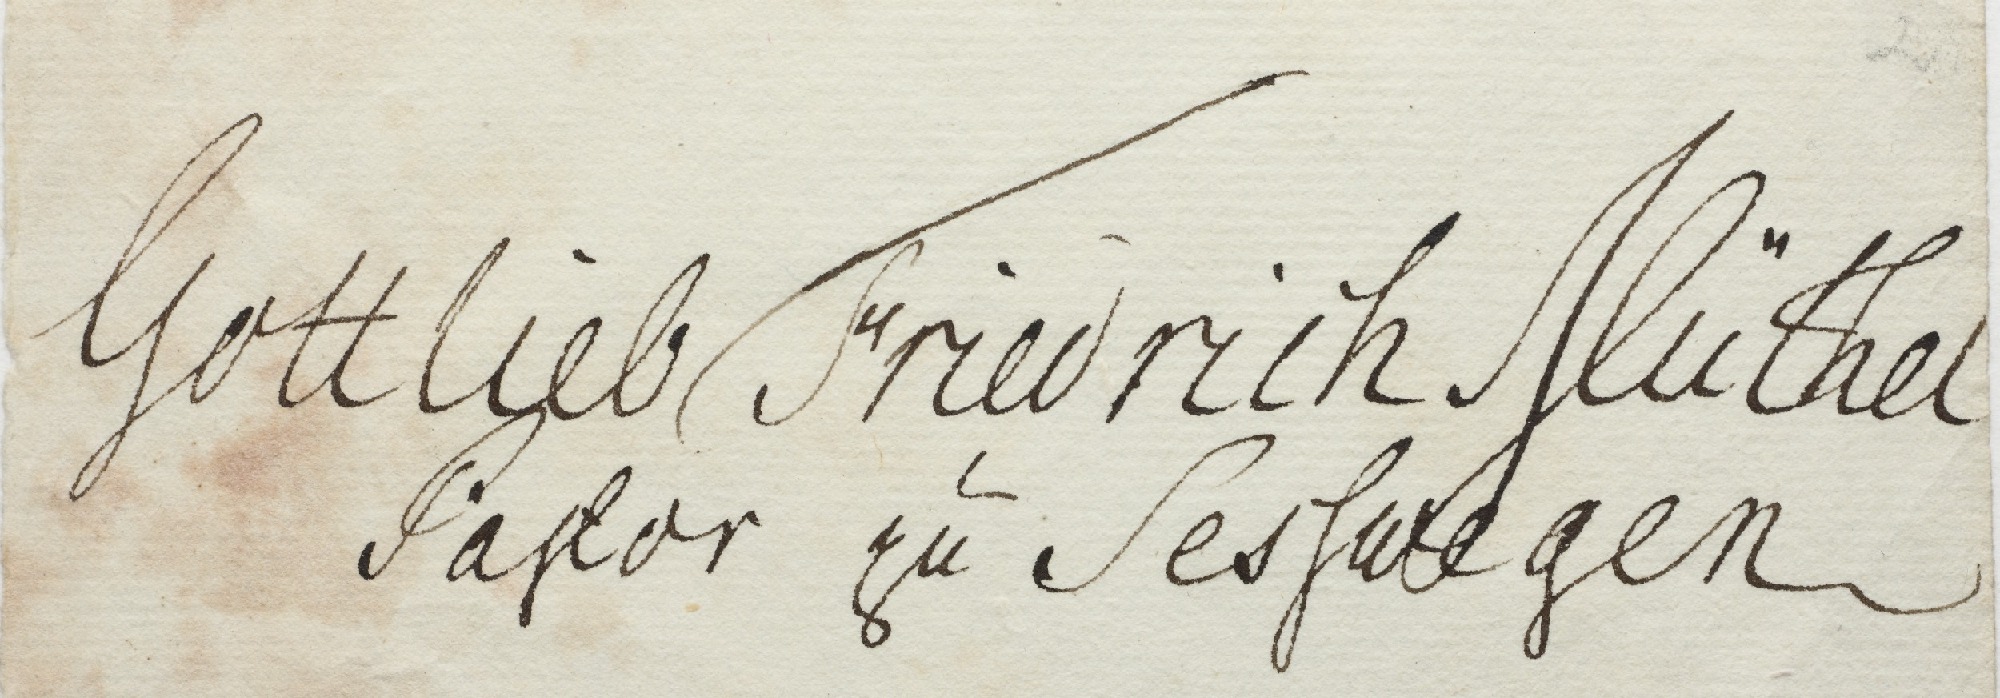 Gottlieb Friedrich Müthel
Pastor zu Sesswegen